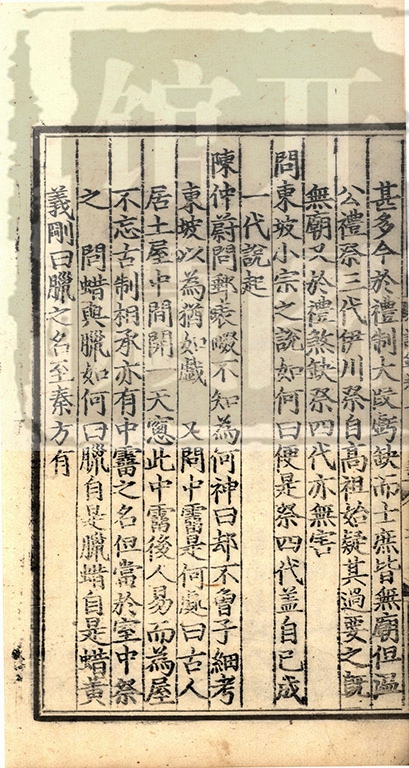 甚多今於禮制大段虧缺而士庶皆無廟但溫
公禮祭三代伊川祭自高祖始疑其過要之旣
無廟又於禮煞缺祭四代亦無害
問東坡小宗之說如何曰便是祭四代盖自己成
一代說起
陳仲蔚問郵表畷不知為何神曰却不曾子細考
東坡以為猶如戲　又問中霤是何處曰古人
居土屋中間開一天窓此中霤後人易而為屋
不忘古制相承亦有中霤之名但當於室中祭
之　問蜡與臘如何曰臘自是臘蜡自是蜡黄
義剛曰臘之名至秦方有